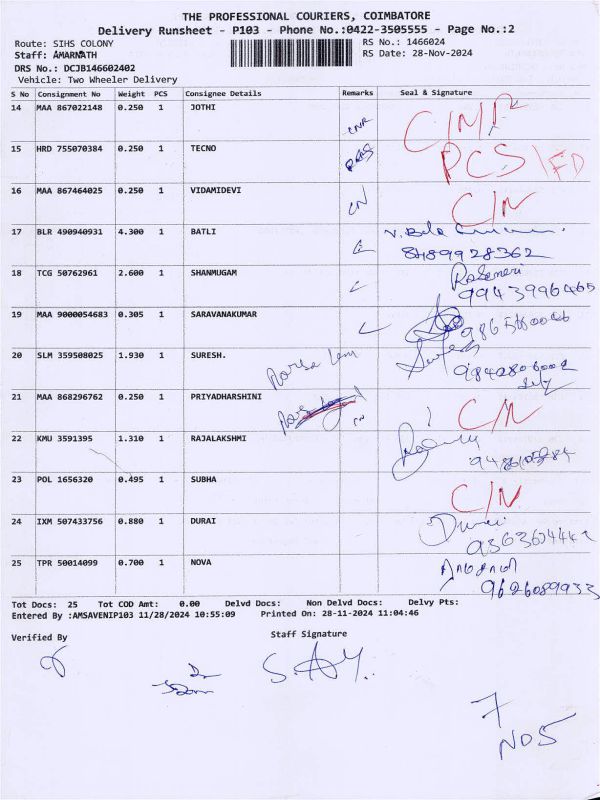 THE PROFESSIONAL COURIERS, COIMBATORE
Delivery Runsheet - P103 - Phone No.:0422-3505555 - Page No.:2
Route: SIHS COLONY
RS No.: 1466024
Staff: AMARNATH
RS Date: 28-Nov-2024
DRS No.: DCJB146602402
Vehicle: Two Wheeler Delivery
S No Consignment No Weight PCS Consignee Details Remarks Seal & Signature
14 MAA 867022148 0.250 1 JOTHI
15 HRD 755070384 0.250 1 TECNO PCS
16 MAA 867464025 0.250 1 VIDAMIDEVI C/N
17 BLR 490940931 4.300 1 BATLI
8489928362
18 TCG 50762961 2.600 1 SHANMUGAM
9943996465
19 MAA 9000054683 0.305 1 SARAVANAKUMAR
20 SLM 359508025 1.930 1 SURESH.
21 MAA 868296762 0.250 1 PRIYADHARSHINI C/N
22 KMU 3591395 1.310 1 RAJALAKSHMI
23 POL 1656320 0.495 1 SUBHA C/N
24 IXM 507433756 0.880 1 DURAI
25 TPR 50014099 0.700 1 NOVA
9626089933
Tot Docs: 25 Tot COD Amt: 0.00 Delvd Docs: Non Delvd Docs: Delvy Pts:
Entered By :AMSAVENIP103 11/28/2024 10:55:09 Printed On: 28-11-2024 11:04:46
Verified By
Staff Signature
7
NDS